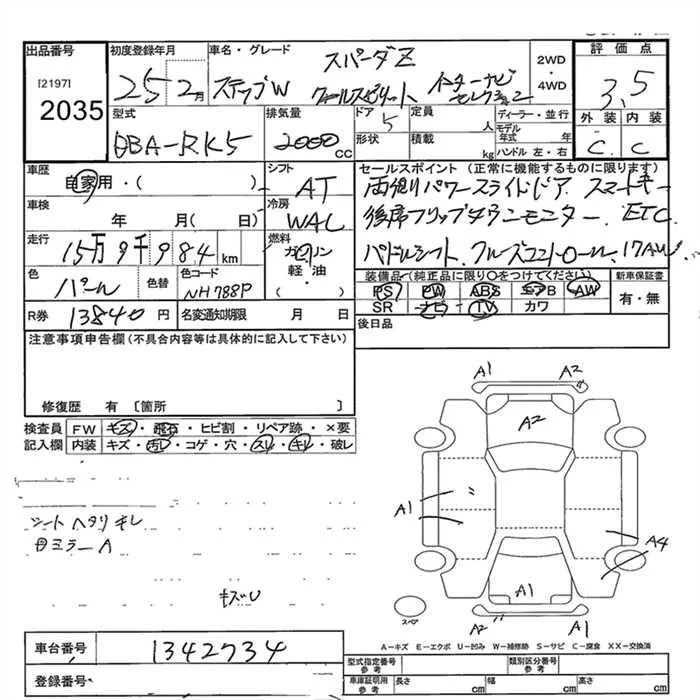 出品番号
[2197]
2035
初度登録年月
25 2月
車名・グレード
スパーダZ
ステップW クールスピリット インターナビセレクション
2WD
・
4WD
評価点
3.5
外装 内装
C C
型式
DBA-RK5
排気量
2000 CC
ドア
5
形状
定員
人
積載
kg
ディーラー・並行
モデル年式 年
ハンドル 左・右
車歴
自家用・( )
シフト
AT
車検
年 月( 日)
冷房
WAC
走行
15万9千984 km
燃料
ガソリン
軽・油
( )
色
パール
色替
色コード
NH788P
R券
13840 円
名変通知期限 月 日
セールスポイント (正常に機能するものに限ります)
両側パワースライドドア スマートキー
後席フリップダウンモニター ETC
パドルシフト、クルーズコントロール、17AW
装備品(純正品に限り○をつけてください)
PS PW ABS エアB AW
SR ナビ TV カワ
新車保証書
有・無
後日品
注意事項申告欄(不具合内容等は具体的に記入して下さい)
修復歴 有 〔箇所 〕
検査員記入欄
FW キズ・飛石・ヒビ割・リペア跡・×要
内装 キズ・汚レ・コゲ・穴・スレ・キレ・破レ
シートヘタリキレ
日ミラーA
キズU
A1
A2
A2
A1
A1
A4
A1
A2
A1
スペア
A-キズ E-エクボ U-凹み W-補修跡 S-サビ C-腐食 XX-交換済
車台番号
1342734
登録番号
型式指定番号 参考
類別区分番号 参考
車庫証明用 参考
長さ cm 幅 cm 高さ cm